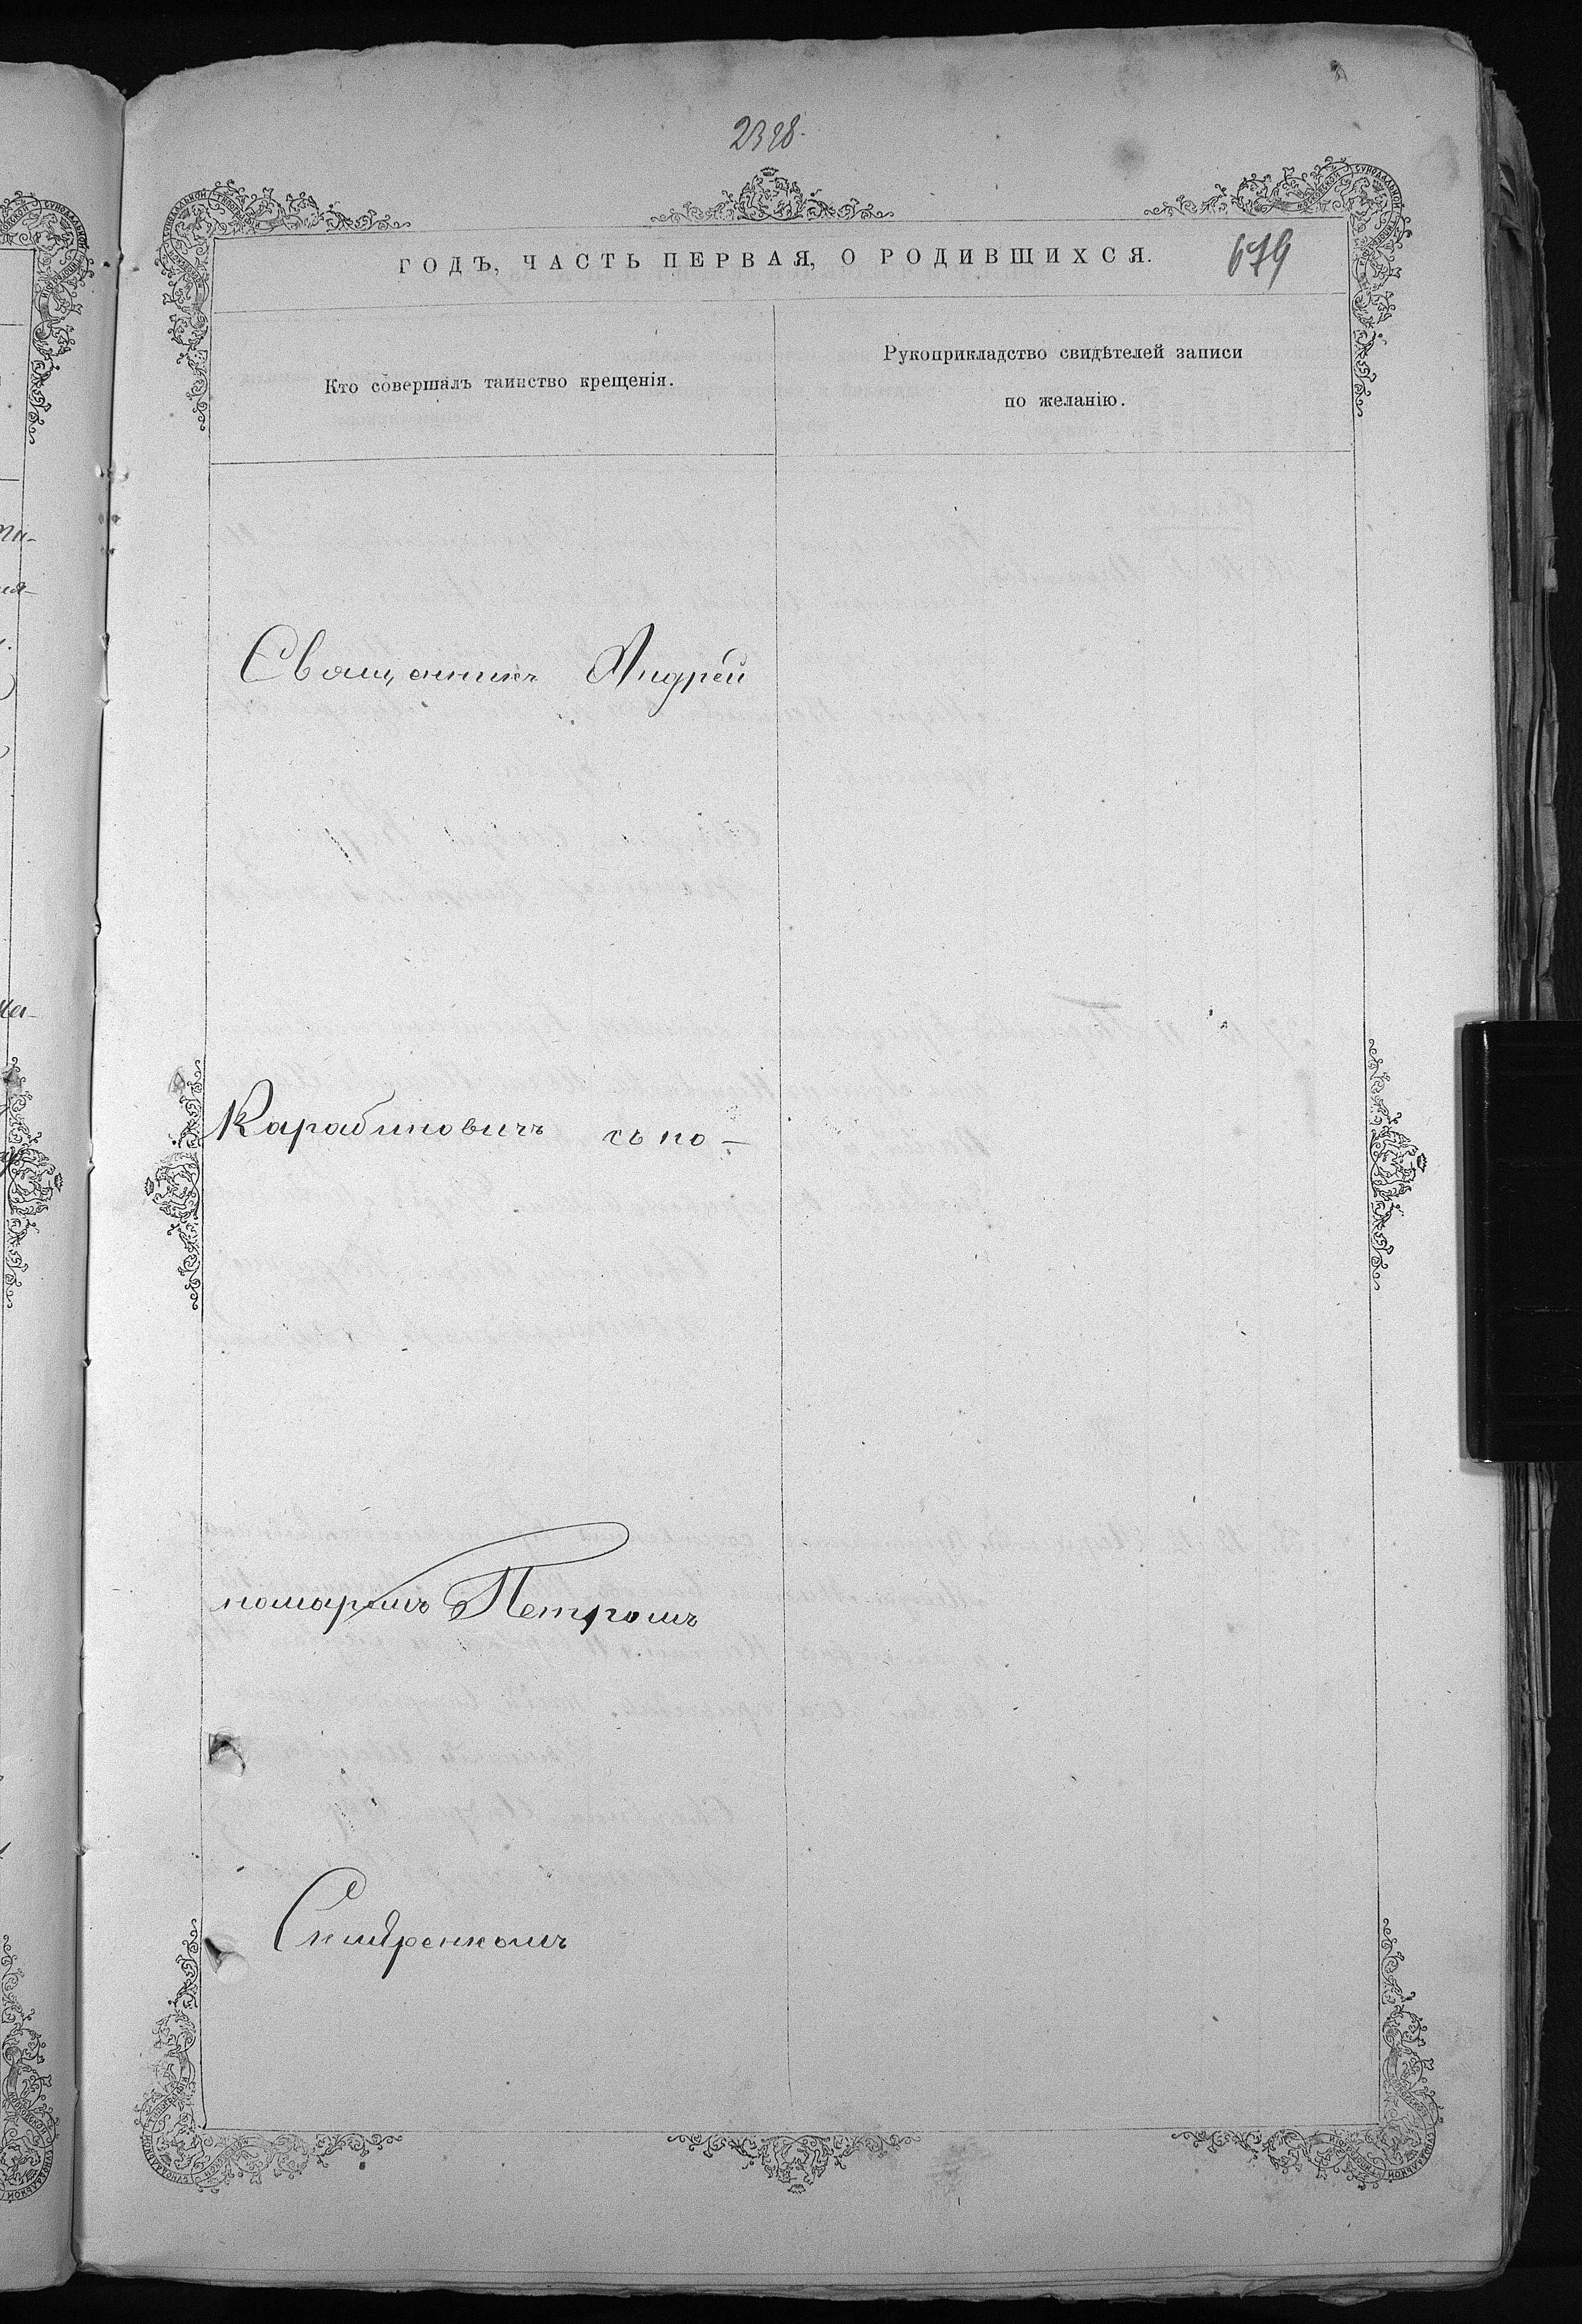 2328.
ГОДЪ, ЧАСТЬ ПЕРВАЯ, О РОДИВШИХСЯ.
679
Кто совершалъ таинство крещенія.
Рукоприкладство свидѣтелей записи
по желанію.
Священникъ Андрей
Карабиновичъ съ по-
номаремъ Петромъ
Скляренкомъ